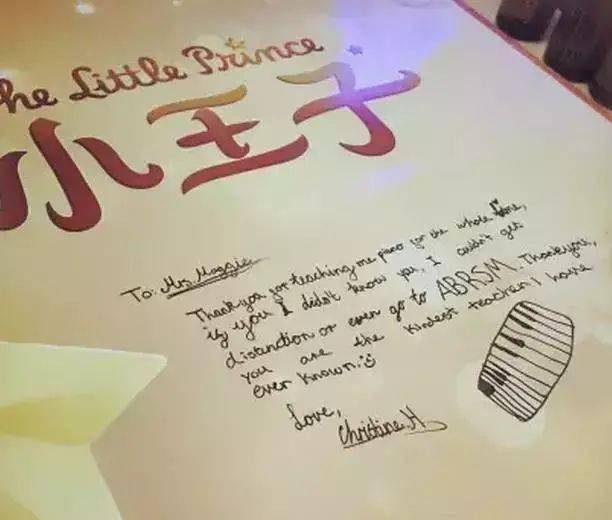 The Little Prince
小王子
To: Mrs. Maggie
Thank you for teaching me piano for the whole time,
if you I didn't know you, I couldn't get
distinction or even go to ABRSM. Thank you,
you are the kindest teacher I have
ever known.
Love,
Christine.H